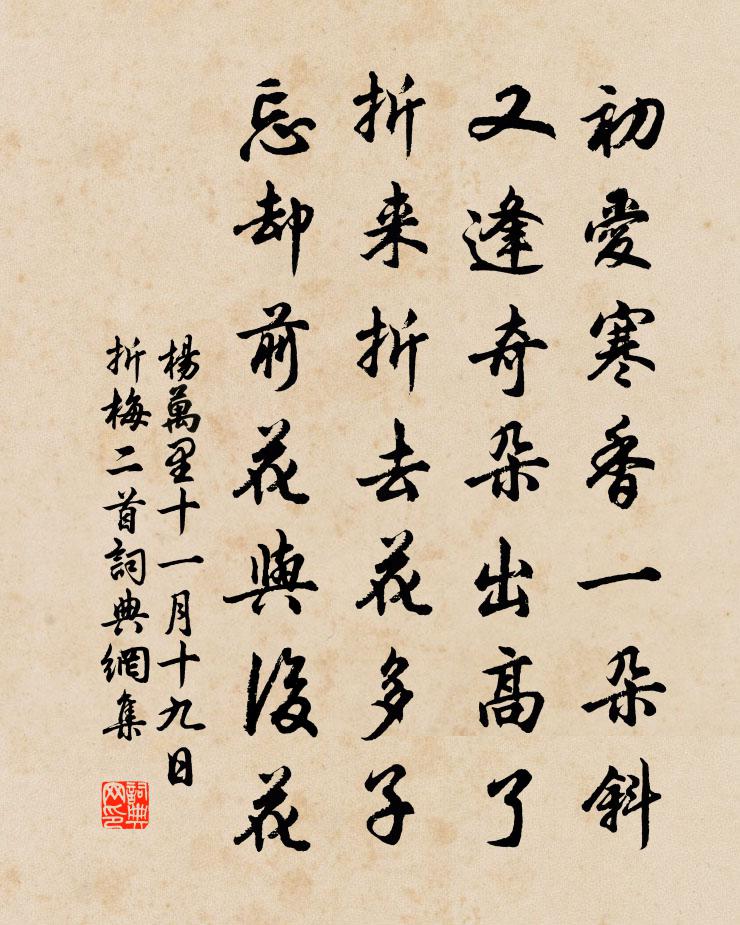 初愛寒香一朵斜
又逢奇朵出高了
折来折去花多子
忘却前花與後花
楊萬里十一月十九日
折梅二首詞典網集
詞典网印